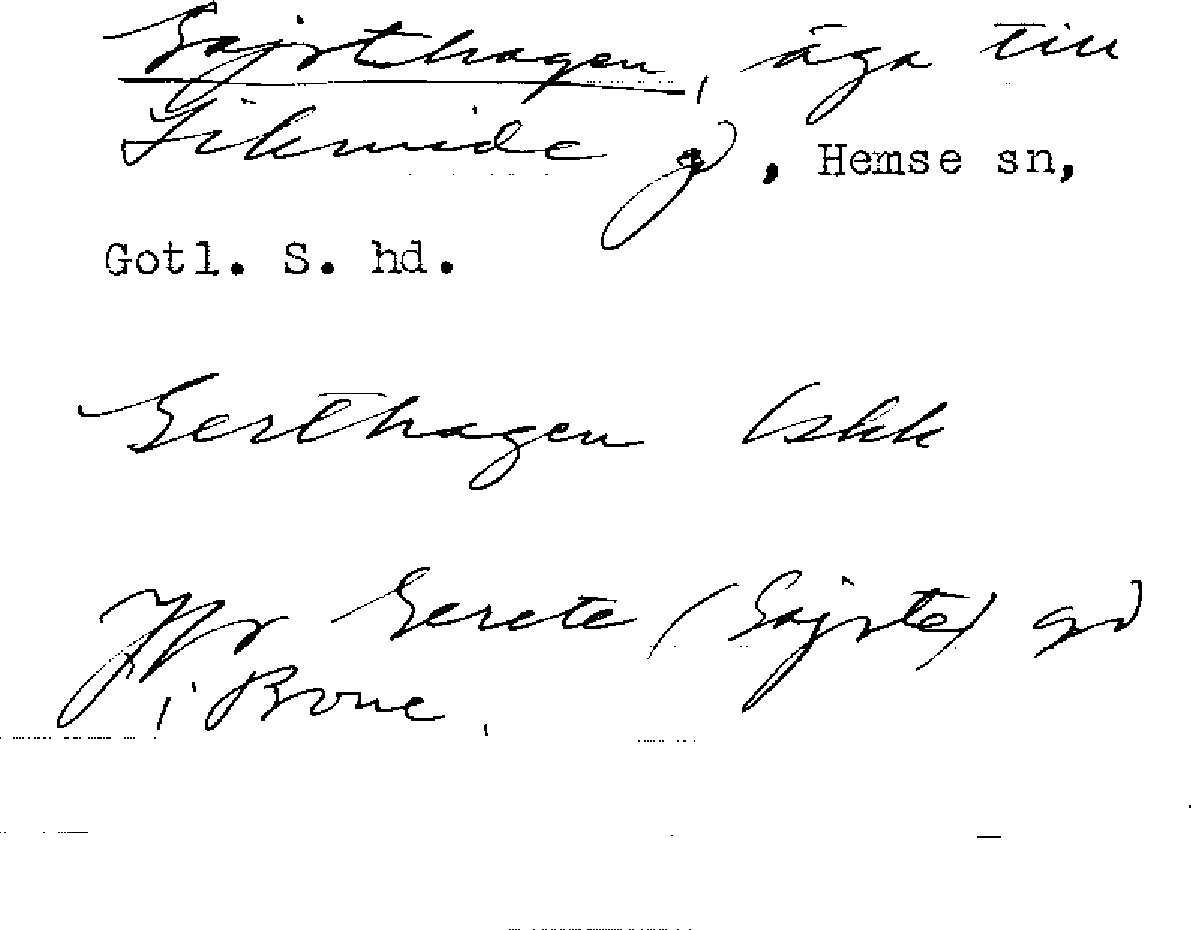 Gajrthagen, äga till
Likmide gd, Hemse sn,
Gotl. S. hd.
Gerthagen lskk
Jfr Gerete (Gajrte) gd
i Rone.